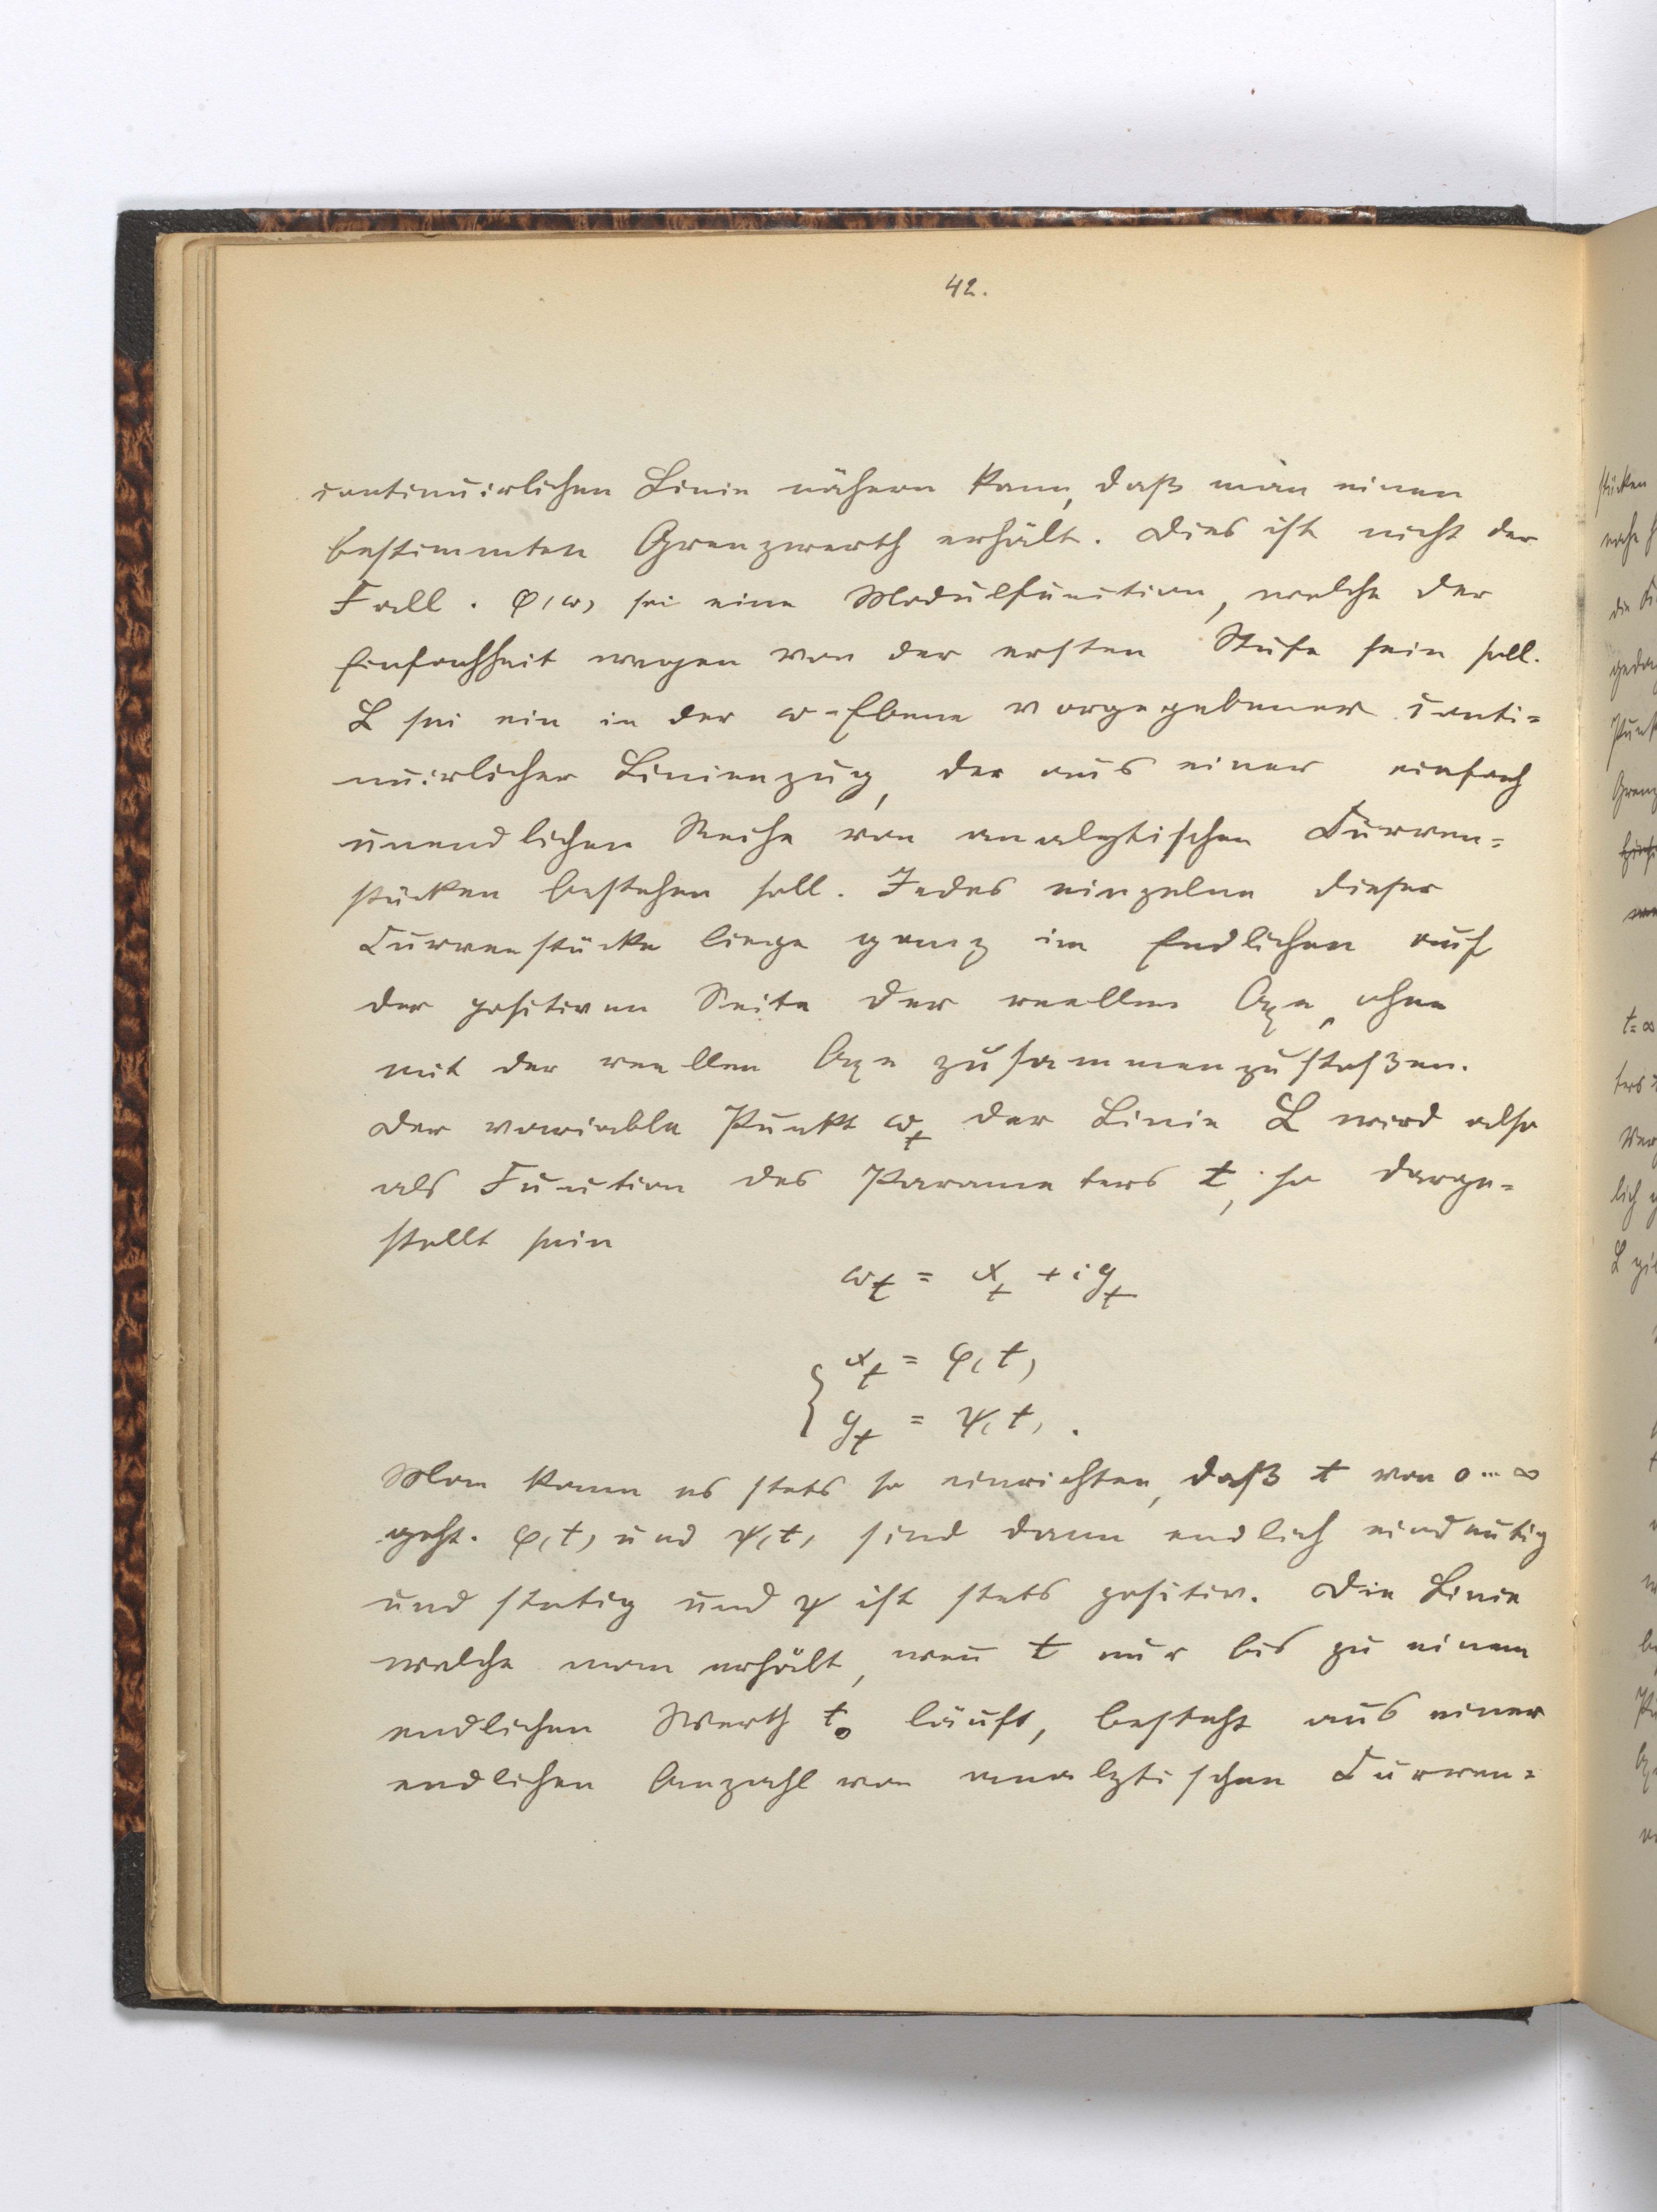 42.
continuirlichen Linie nähern kann, daß man einen
bestimmten Grenzwerth erhält. Dies ist nicht der
Fall. φ(ω) sei eine Modulfunction, welche der
Einfachheit wegen von der ersten Stufe sein soll.
L sei ein in der ω-Ebene vorgegebener conti=
nuirlicher Linienzug, der aus einer einfach
unendlichen Reihe von analytischen Curven=
stücken bestehen soll. Jedes einzelne dieser
Curvenstücke liege ganz im Endlichen auf
der positiven Seite der reellen Axe, ohne
mit der reellen Axe zusammenzustoßen.
Der variable Punkt ω_t der Linie L wird also
als Function des Parameters t, so darge=
stellt sein
ω_t = x_t + i y_t
x_t = φ(t)
y_t = ψ(t).
Man kann es stets so einrichten, daß t von 0...∞
geht. φ(t) und ψ(t) sind dann endlich eindeutig
und stetig und ψ ist stets positiv. Die Linie
welche man erhält, wen̄ t nur bis zu einem
endlichen Werth t_0 läuft, besteht aus einer
endlichen Anzahl von analytischen Curven=
stücken
t=∞